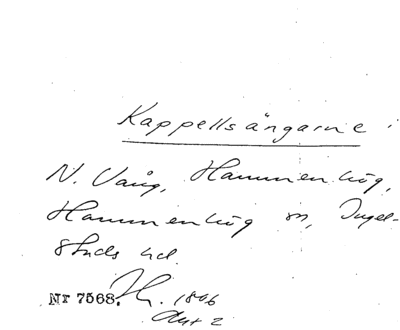 Kappellsängarne i
N. Vång, Hammenhög,
Hammenhög sn, Ingel-
stads hd.
Nr 7568. 1806
Akt 2